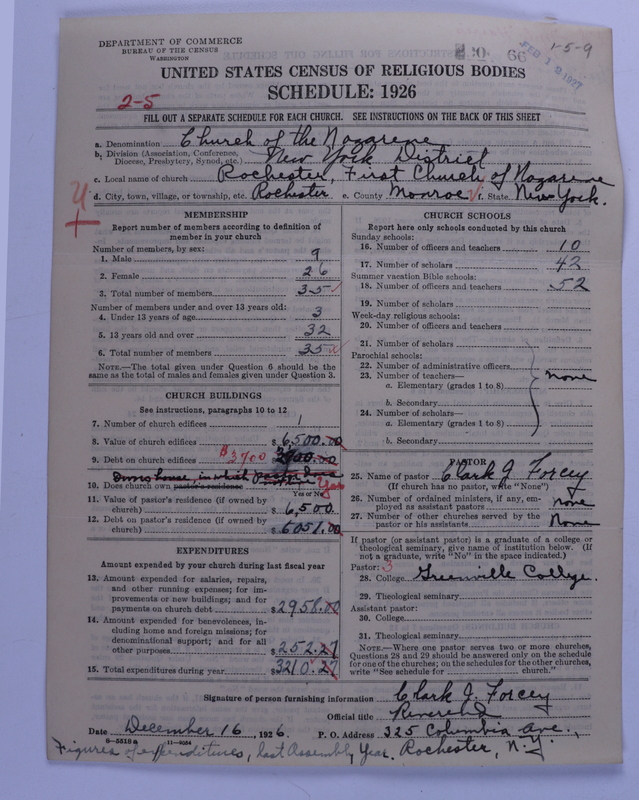 DEPARTMENT OF COMMERCE
BUREAU OF THE CENSUS
WASHINGTON
66
FEB 12 1927
1-5-9
UNITED STATES CENSUS OF RELIGIOUS BODIES
SCHEDULE: 1926
2-5
FILL OUT A SEPARATE SCHEDULE FOR EACH CHURCH. SEE INSTRUCTIONS ON THE BACK OF THIS SHEET
a. Denomination Church of the Nazarene
b. Division (Association, Conference, Diocese, Presbytery, Synod, etc.) New York District
c. Local name of church Rochester, First Church of Nazarene
d. City, town, village, or township, etc. Rochester e. County Monroe f. State New York.
MEMBERSHIP
Report number of members according to definition of
member in your church
Number of members, by sex:
1. Male 9
2. Female 26
3. Total number of members 35
Number of members under and over 13 years old:
4. Under 13 years of age 3
5. 13 years old and over 32
6. Total number of members 35
NOTE.—The total given under Question 6 should be the
same as the total of males and females given under Question 3.
CHURCH BUILDINGS
See instructions, paragraphs 10 to 12
7. Number of church edifices 1
8. Value of church edifices $ 6,500.00
9. Debt on church edifices $3700
Owns house, in which Pastor lives
10. Does church own pastor's residence Yes
Yes or No
11. Value of pastor's residence (if owned by
church) $ 6,500.
12. Debt on pastor's residence (if owned by
church) $ 6051.00
EXPENDITURES
Amount expended by your church during last fiscal year
13. Amount expended for salaries, repairs,
and other running expenses; for im-
provements or new buildings; and for
payments on church debt $2958.00
14. Amount expended for benevolences, in-
cluding home and foreign missions; for
denominational support; and for all
other purposes $ 252.27
15. Total expenditures during year $3210.27
CHURCH SCHOOLS
Report here only schools conducted by this church
Sunday schools:
16. Number of officers and teachers 10
17. Number of scholars 42
Summer vacation Bible schools:
18. Number of officers and teachers 52
19. Number of scholars
Week-day religious schools:
20. Number of officers and teachers
21. Number of scholars
Parochial schools:
22. Number of administrative officers
23. Number of teachers— none
a. Elementary (grades 1 to 8)
b. Secondary
24. Number of scholars—
a. Elementary (grades 1 to 8)
b. Secondary
PASTOR
25. Name of pastor Clark J. Forcey
(If church has no pastor, write "None")
26. Number of ordained ministers, if any, em-
ployed as assistant pastors none
27. Number of other churches served by the
pastor or his assistants None
If pastor (or assistant pastor) is a graduate of a college or
theological seminary, give name of institution below. (If
not a graduate, write "No" in the space indicated.)
Pastor: 3
28. College Greenville College.
29. Theological seminary
Assistant pastor:
30. College
31. Theological seminary
NOTE.—Where one pastor serves two or more churches,
Questions 28 and 29 should be answered only on the schedule
for one of the churches; on the schedules for the other churches,
write "See schedule for church."
Signature of person furnishing information Clark J. Forcey
Official title Reverend
Date December 16, 1926. P. O. Address 325 Columbia Ave.,
8—5518a 11—9054
Figures of expenditures, last Assembly Year. Rochester, N.Y.